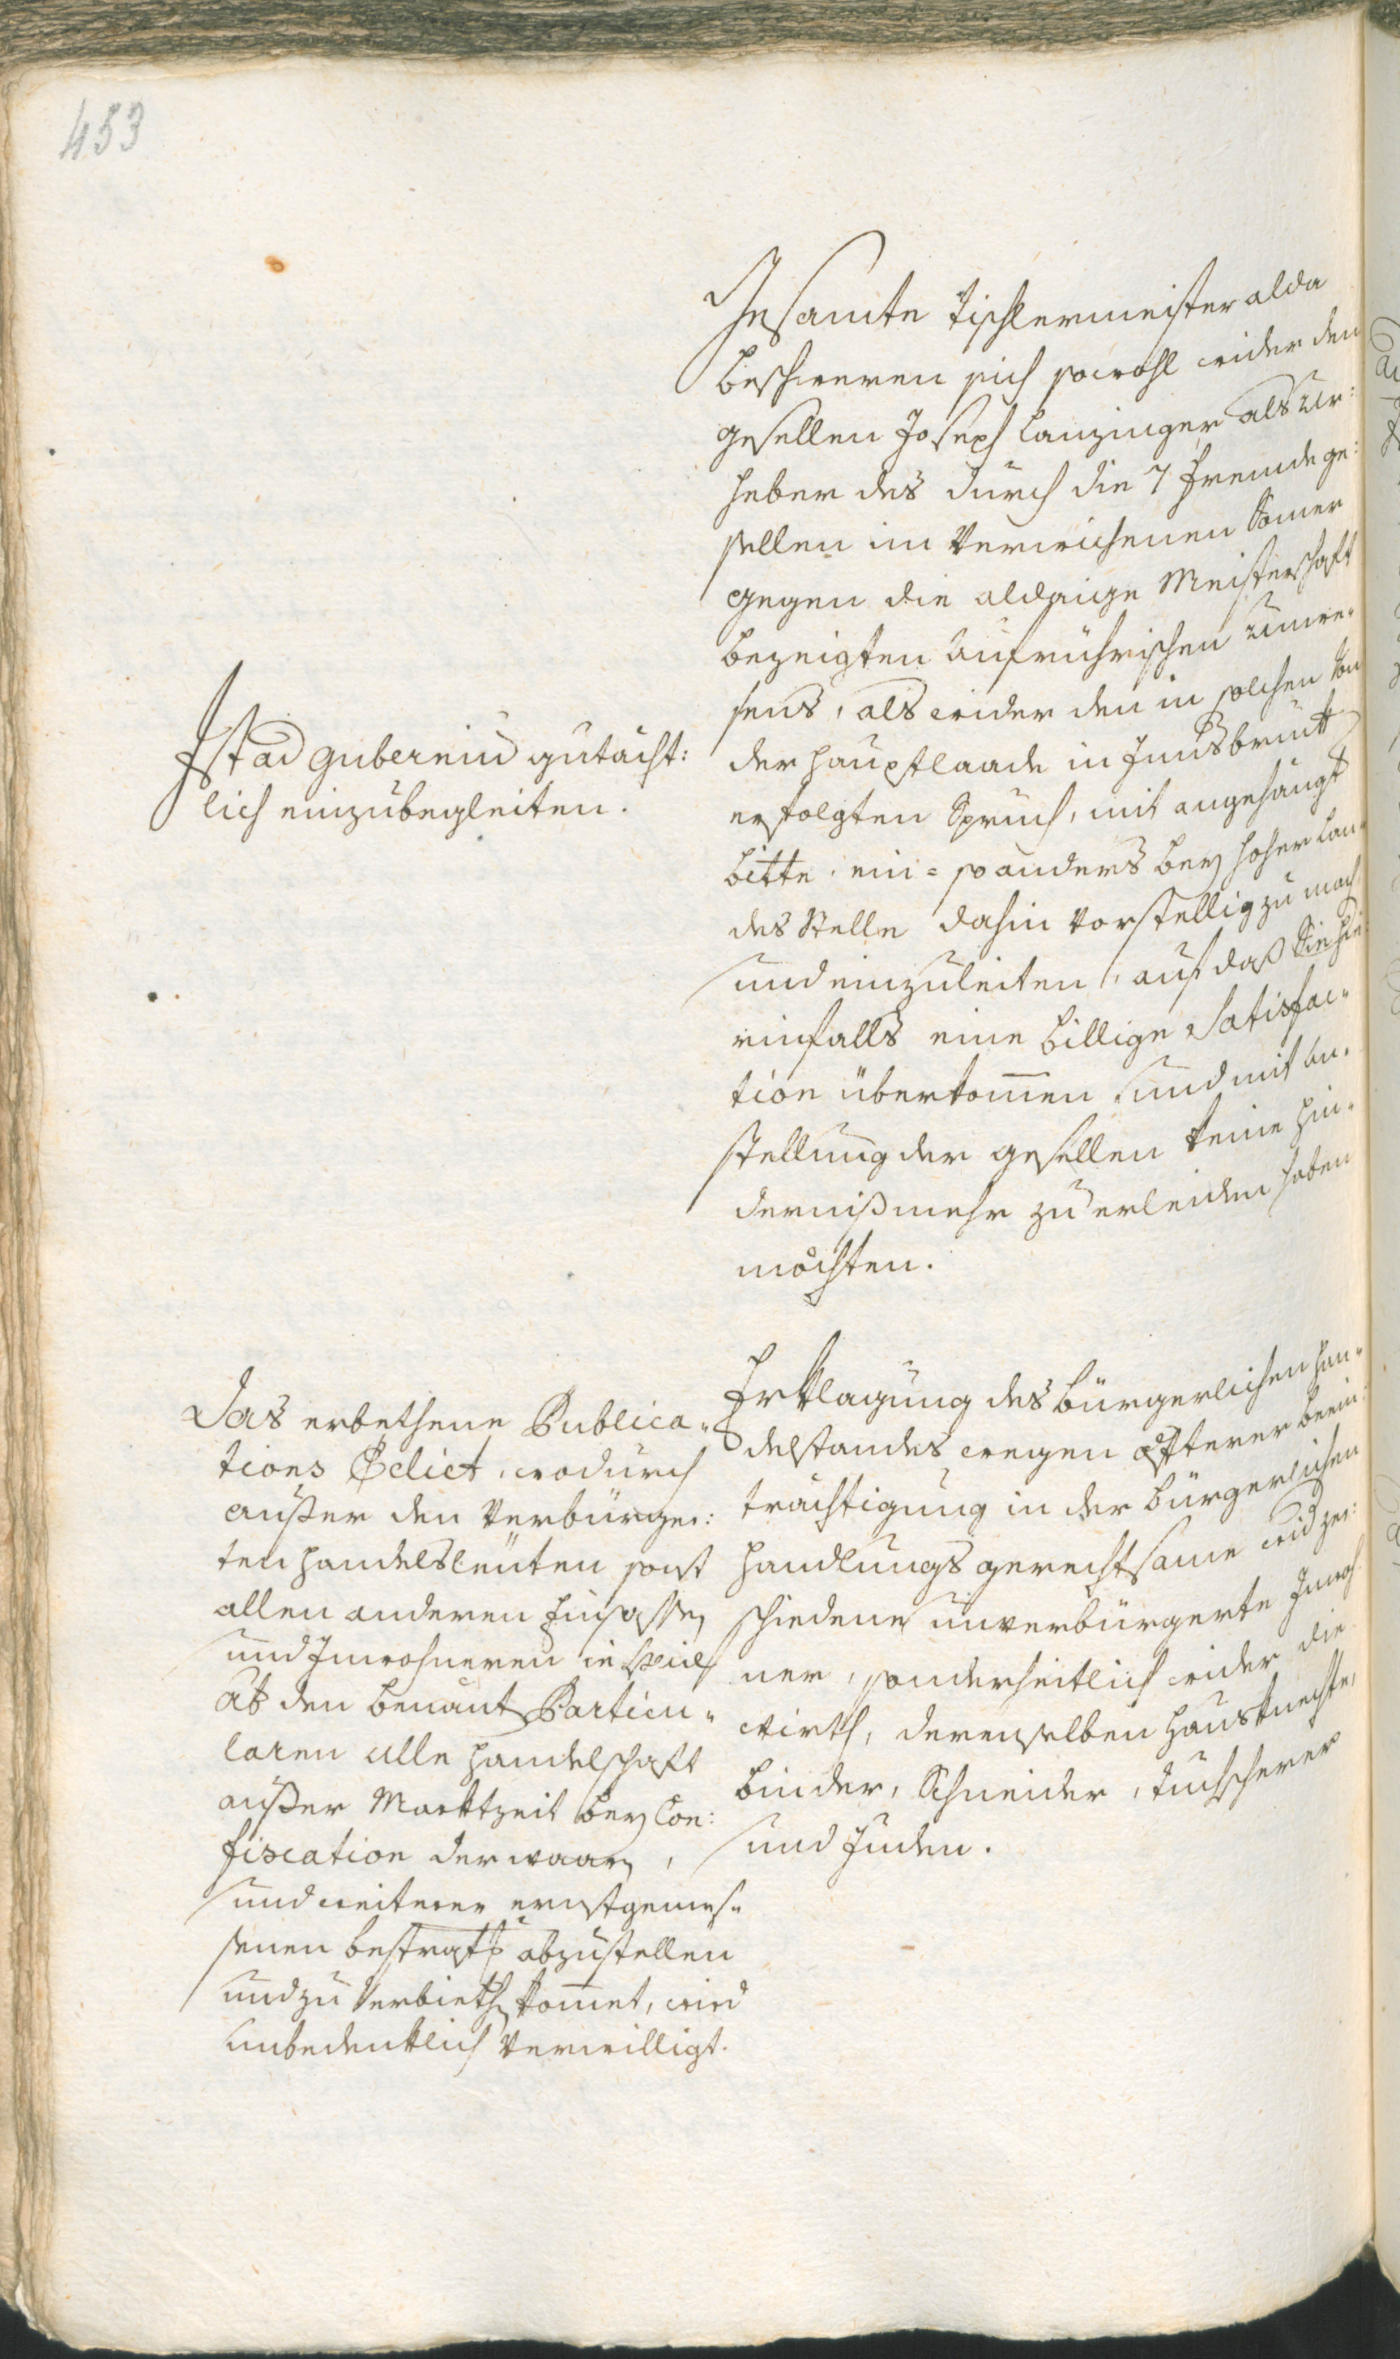 453
Gesamte Tischlermeister alda
beschweren sich sowohl wider den
gesellen Joseph Lanzinger als Ur:
heber des durch die 7 fremde ge:
sellen im verwichenen Somer
gegen die aldasige Meisterschaft
bezeigten aufrührischen Unwe„
sens, als wider den in solchen von
der Hauptlaade in Innsbrukt
erfolgten Spruch, mit angehängt
bitte ein= so anders bey hoher Lan„
des Stelle dahin vorstellig zu mach
und einzuleiten, auf daß Sie hie
rinfalls eine billige Satisfac„
tion überkomen und mit An„
stellung der gesellen keine Hin„
derniß mehr zu erleiden haben
möchten.
Ist ad gubernium gutächt:
lich einzubegleiten.
Erklagung des bürgerlichen Han„
delstandes wegen öfterer beein
trächtigung in der bürgerlichen
Handlungs gerechtsame wid ver:
schiedene unverbürgerte Inwoh
ner, sonderheitlich wider die
Wirth, derenselben Hausknechte,
binder, Schneider, Tuchscherer
und Juden.
Das erbethene Publica„
tions Edict, wodurch
ausser den verbürger:
ten Handelsleuten sonst
allen anderen Insassen
und Inwohneren in
als den benant Particu„
laren alle Handelschaft
ausser Marktzeit bey Con:
fiscation der waaren,
und weiterer ernstgemes„
senen bestrafg abzustellen
und zu verbiethen komet, wird
unbedenklich verwilligt.